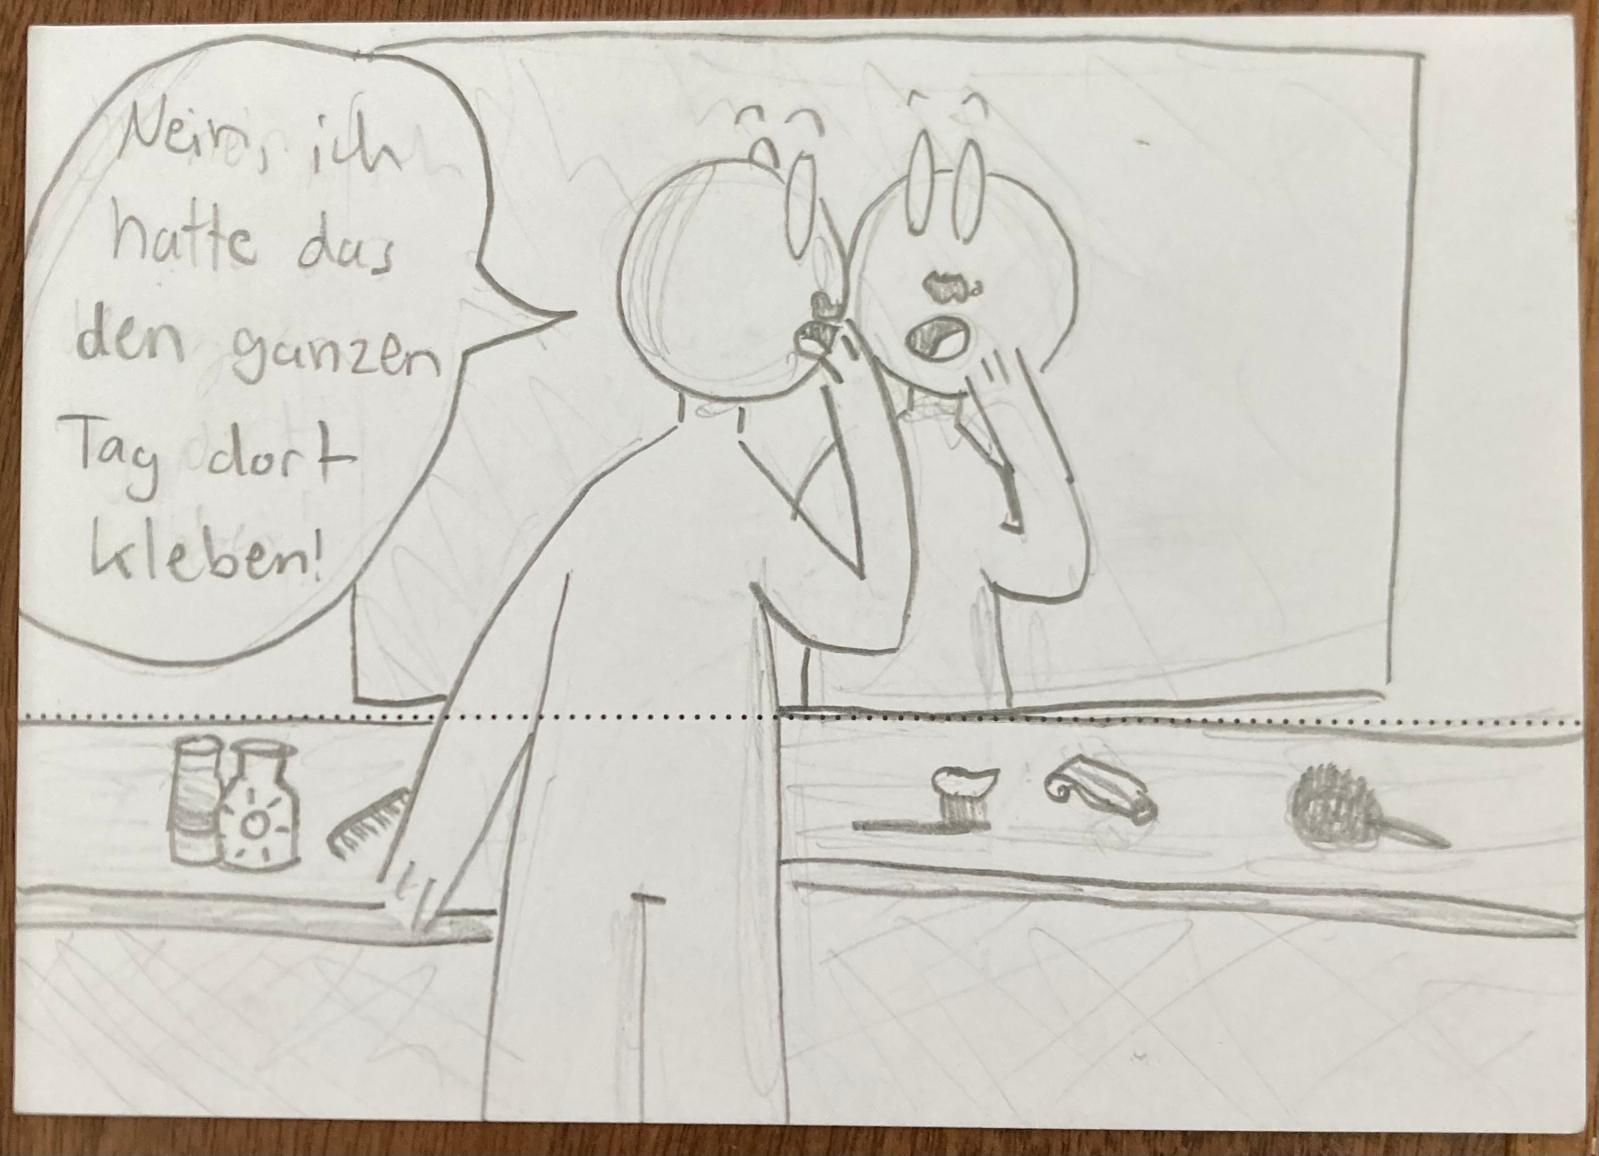 Nein, ich
hatte das
den ganzen
Tag dort
kleben!